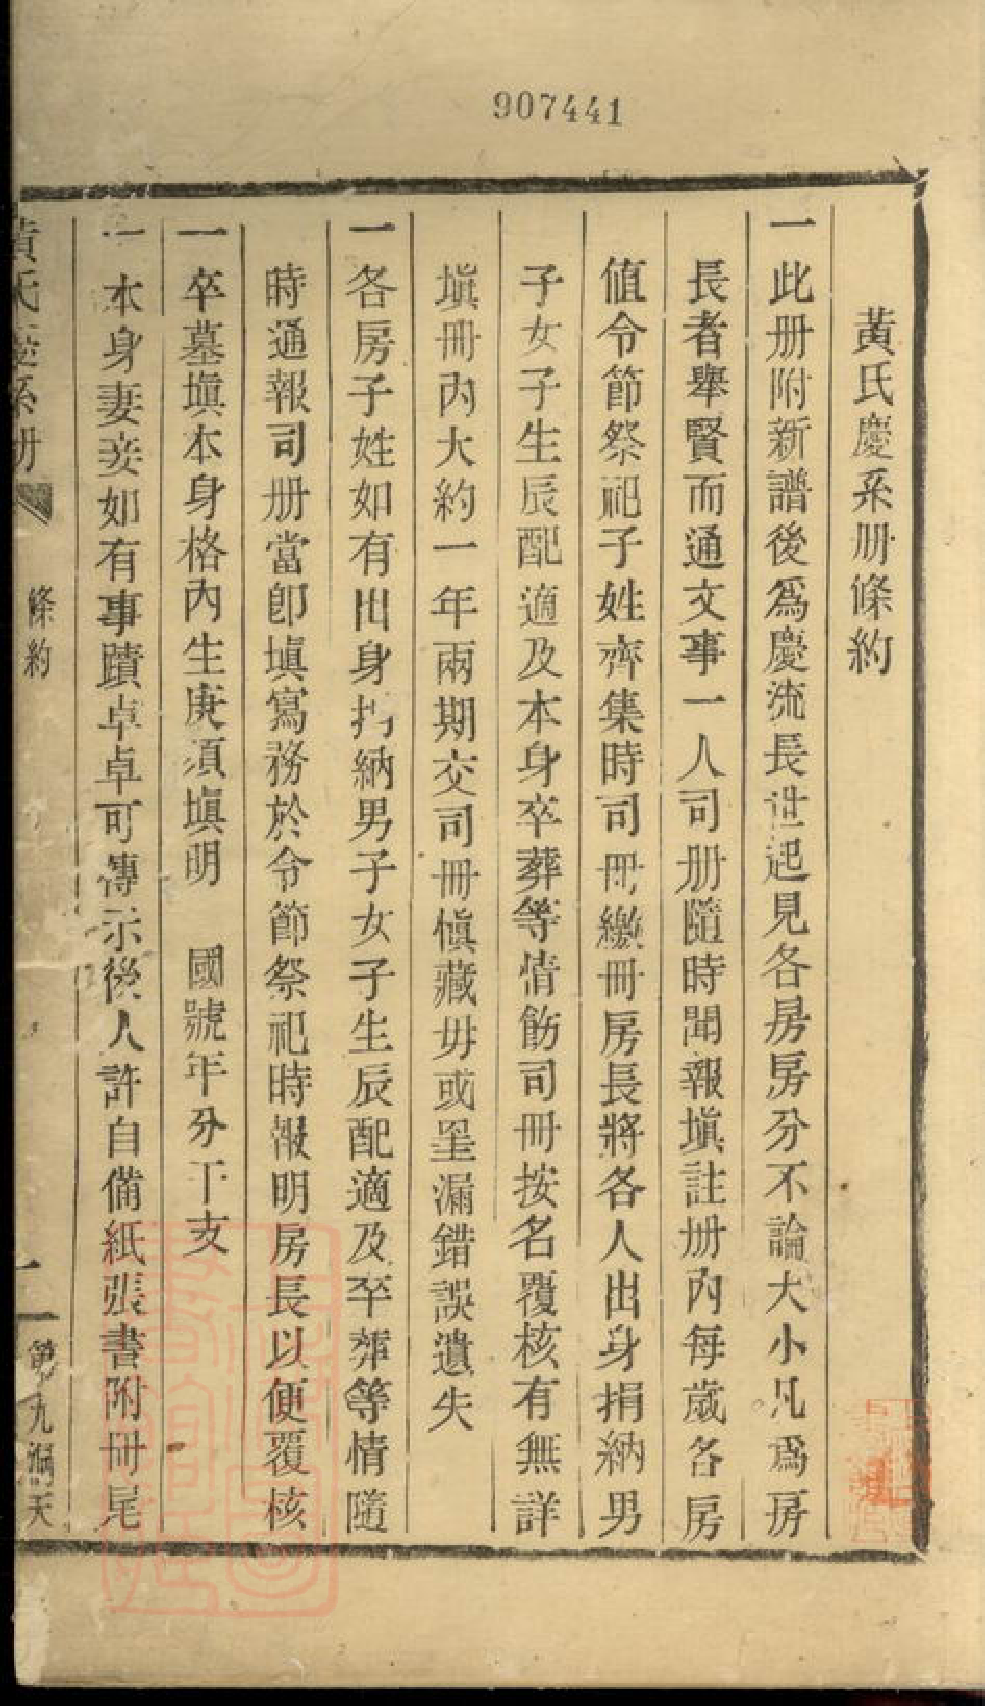 907441
黃氏慶系册條約
一此册附新譜後為慶流長世起見各房房分不論大小凡為房
長者舉賢而通文事一人司册隨時聞報塡註册內每歲各房
值令節祭祀子姓齊集時司冊繳冊房長將各人出身捐納男
子女子生辰配適及本身卒葬等情飭司冊按名覆核有無詳
塡冊內大約一年兩期交司冊愼藏毋或罣漏錯誤遺失
一各房子姓如有出身捐納男子女子生辰配適及卒葬等情隨
時通報司册當卽塡寫務於令節祭祀時報明房長以便覆核
一卒墓塡本身格內生庚須塡明　國號年分干支
一本身妻妾如有事蹟卓卓可傳示後人許自備紙張書附冊尾
黃氏慶系册
條約
一
第九洞天